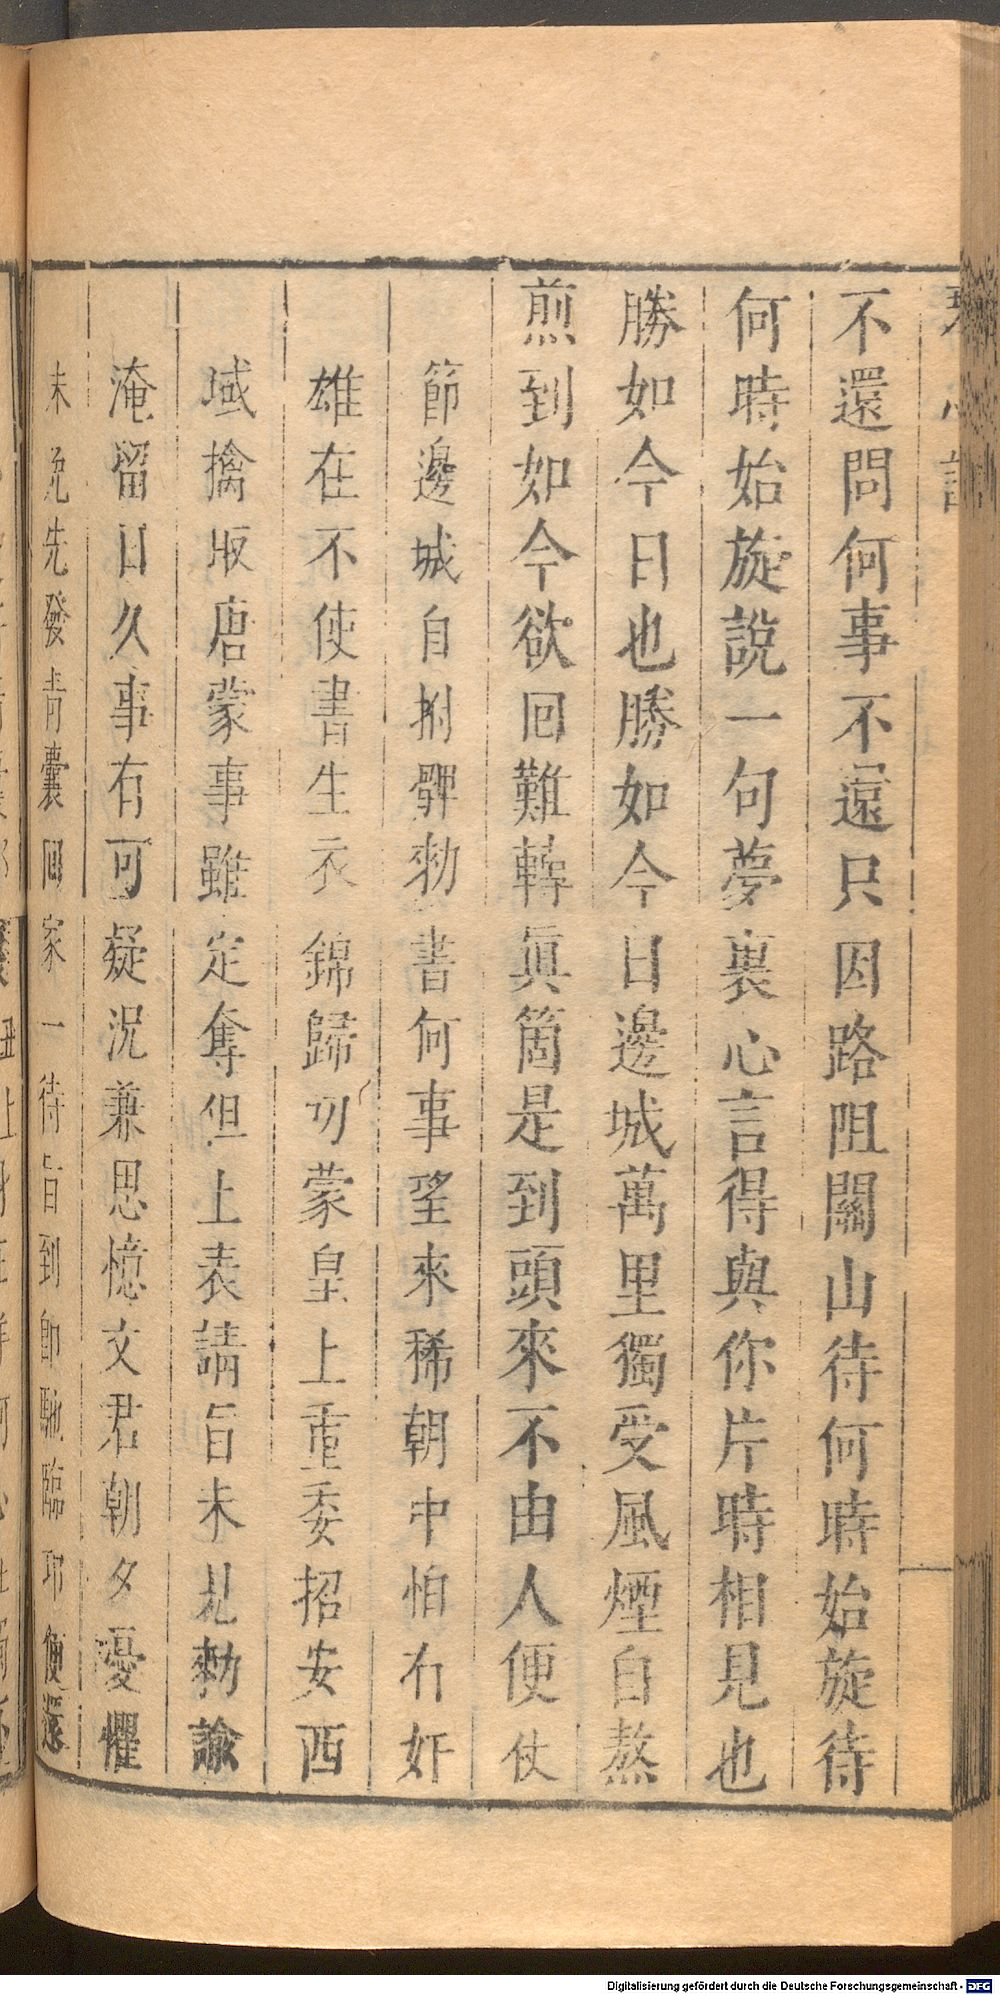 琴心記
不還問何事不還只因路阻關山待何時始旋待
何時始旋說一句夢裏心言得與你片時相見也
勝如今日也勝如今日邊城萬里獨受風煙自熬
煎到如今欲回難轉眞箇是到頭來不由人便仗
節邊城自 勅書何事望來稀朝中怕有奸
雄在不使書生衣錦歸 蒙皇上重委招安西
域擒 唐蒙事雖定奪但上表請旨未見勅諭
淹留日久事有可疑況兼思憶文君朝夕憂懼
未免先發青囊回家一待旨到卽馳臨邛便還
Digitalisierung gefördert durch die Deutsche Forschungsgemeinschaft - DFG